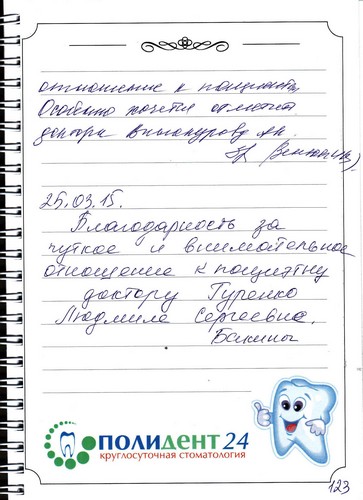 отношение к пациенту.
Особенно хочется отметить
доктора Винокурову
25.03.15.
Благодарность за
чуткое и внимательное
отношение к пациенту
доктору Гуренко
Людмиле Сергеевне.
ПОЛИДЕНТ 24
круглосуточная стоматология
123